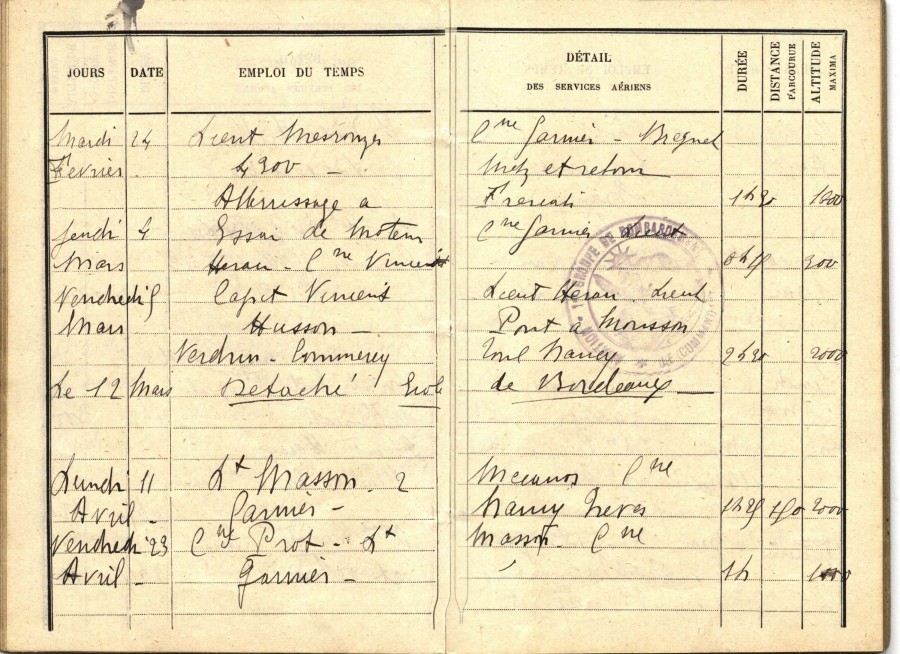 JOURS DATE EMPLOI DU TEMPS DÉTAIL DES SERVICES AÉRIENS DURÉE DISTANCE PARCOURUE ALTITUDE MAXIMA
Mardi 24 Lieut Cne Garnier - Breguet
Février 4200 - Metz et retour
Atterrissage a Frescati 1h30 1800
Jeudi 4 Essai de Moteur Cne Garnier
Mars Heran - Cne Vincent 0h15 300
Vendredi 5 Capit Vincent Lieut Heran Lieut
Mars Husson - Pont à Mousson
Verdun - Commercy Toul Nancy 2h30 2000
Le 12 Mars Detaché Ecole de Bordeaux
Lundi 11 Lt Masson - 2 Mecanos Cne
Avril - Garnier - Nancy Treves 1h25 150 2000
Vendredi 23 Cne Prot - Lt Masson - Cne
Avril - Garnier - 1h